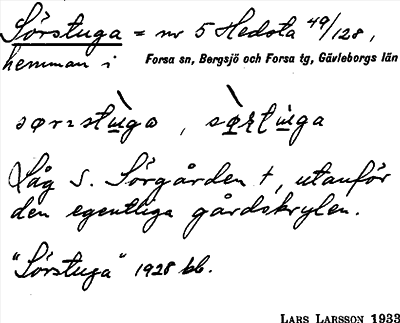 Sörstuga = nr 5 Hedsta 49/128,
hemman i Forsa sn, Bergsjö och Forsa tg, Gävleborgs län
Låg S. Sörgården †, utanför
den egentliga gårdskrylen.
"Sörstuga" 1928 bb.
LARS LARSSON 1933